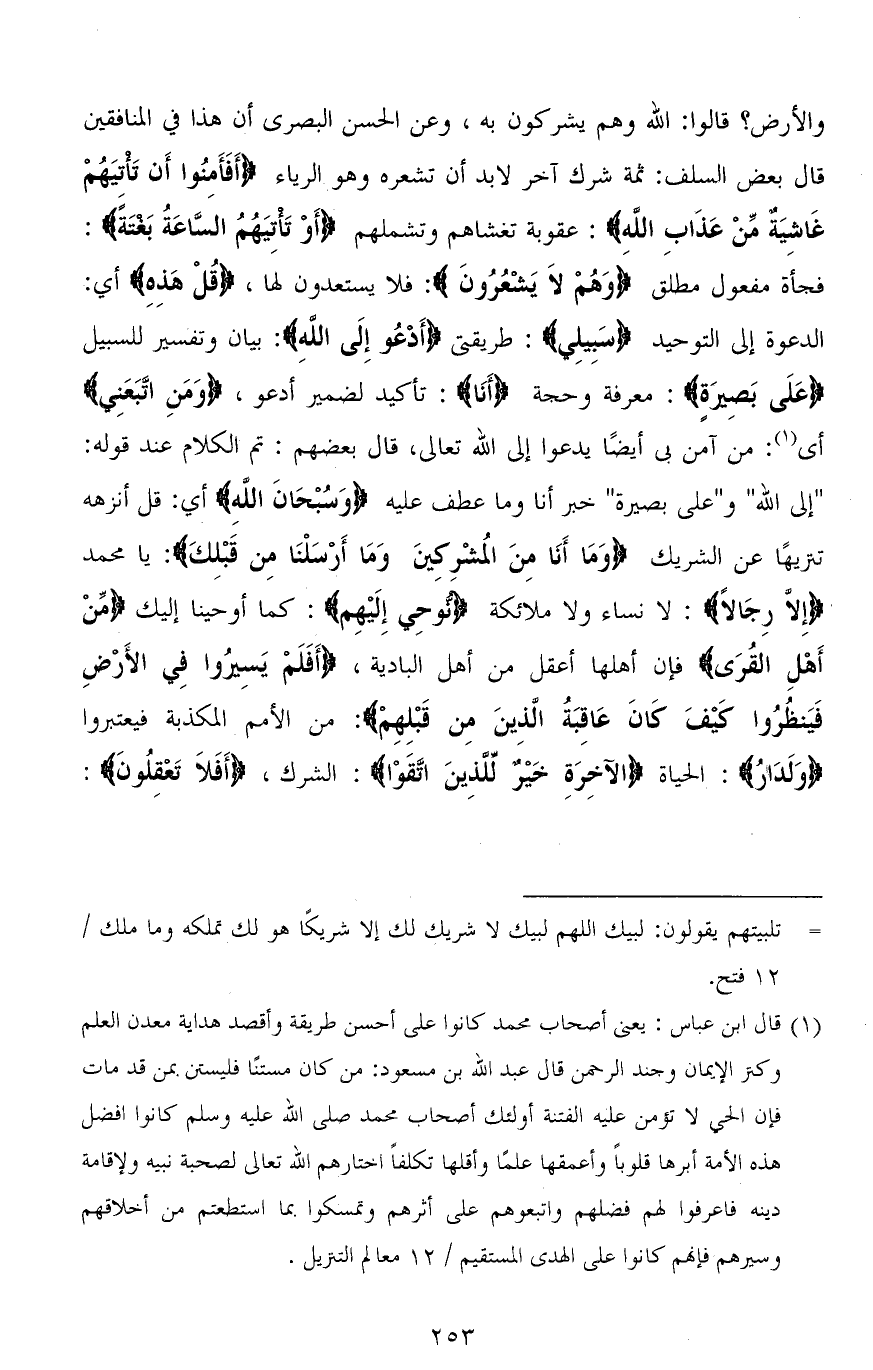 والأرض؟ قالوا: الله وهم يشركون به ، وعن الحسن البصرى أن هذا في المنافقين
قال بعض السلف: ثمة شرك آخر لابد أن تشعره وهو الرياء ﴿أَفَأَمِنُوا أَن تَأْتِيَهُمْ
غَاشِيَةٌ مِّنْ عَذَابِ اللَّهِ﴾ : عقوبة تغشاهم وتشملهم ﴿أَوْ تَأْتِيَهُمُ السَّاعَةُ بَغْتَةً﴾ :
فجأة مفعول مطلق ﴿وَهُمْ لاَ يَشْعُرُونَ ﴾: فلا يستعدون لها ، ﴿قُلْ هَذِهِ﴾ أي:
الدعوة إلى التوحيد ﴿سَبِيلِي﴾ : طريقتى ﴿أَدْعُو إِلَى اللَّهِ﴾: بيان وتفسير للسبيل
﴿عَلَى بَصِيرَةٍ﴾ : معرفة وحجة ﴿أَنَا﴾ : تأكيد لضمير أدعو ، ﴿وَمَنِ اتَّبَعَنِي﴾
أى(١): من آمن بى أيضًا يدعوا إلى الله تعالى، قال بعضهم : تم الكلام عند قوله:
"إلى الله" و"على بصيرة" خبر أنا وما عطف عليه ﴿وَسُبْحَانَ اللَّهِ﴾ أي: قل أنزهه
تنزيهًا عن الشريك ﴿وَمَا أَنَا مِنَ الْمُشْرِكِينَ وَمَا أَرْسَلْنَا مِن قَبْلِكَ﴾: يا محمد
﴿إِلاَّ رِجَالاً﴾ : لا نساء ولا ملائكة ﴿نُّوحِي إِلَيْهِم﴾ : كما أوحينا إليك ﴿مِّنْ
أَهْلِ القُرَى﴾ فإن أهلها أعقل من أهل البادية ، ﴿أَفَلَمْ يَسِيرُوا فِي الأَرْضِ
فَيَنظُرُوا كَيْفَ كَانَ عَاقِبَةُ الَّذِينَ مِن قَبْلِهِمْ﴾: من الأمم المكذبة فيعتبروا
﴿وَلَدَارُ﴾ : الحياة ﴿الآخِرَةِ خَيْرٌ لِّلَّذِينَ اتَّقَوْا﴾ : الشرك ، ﴿أَفَلاَ تَعْقِلُونَ﴾ :
= تلبيتهم يقولون: لبيك اللهم لبيك لا شريك لك إلا شريكًا هو لك تملكه وما ملك /
١٢ فتح.
(١) قال ابن عباس : يعنى أصحاب محمد كانوا على أحسن طريقة وأقصد هداية معدن العلم
وكنز الإيمان وجند الرحمن قال عبد الله بن مسعود: من كان مستنًا فليستن بمن قد مات
فإن الحي لا تؤمن عليه الفتنة أولئك أصحاب محمد صلى الله عليه وسلم كانوا افضل
هذه الأمة أبرها قلوباً وأعمقها علمًا وأقلها تكلفاً اختارهم الله تعالى لصحبة نبيه ولإقامة
دينه فاعرفوا لهم فضلهم واتبعوهم على أثرهم وتمسكوا بما استطعتم من أخلاقهم
وسيرهم فإنهم كانوا على الهدى المستقيم / ١٢ معالم التنزيل .
٢٥٣